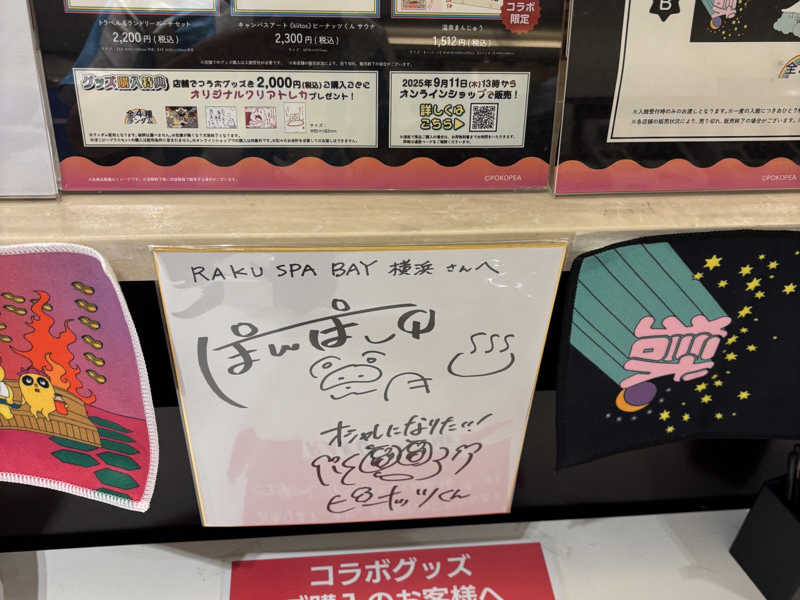 トラベル&ランドリーポーチセット
2,200円(税込)
キャンバスアート (kiitos) ピーナッツくん サウナ
2,300円(税込)
温泉まんじゅう
1,512円(税込)
コラボ
限定
グッズ購入特典
店舗でコラボグッズを2,000円(税込)ご購入ごとに
オリジナルクリアトレカプレゼント!
全4種
ランダム
2025年9月11日(木)13時から
オンラインショップで販売!
詳しくは
こちら▶
©POKOPEA
B
※入館受付時のみのお渡しとなります。
©POKOPEA
RAKU SPA BAY 横浜 さんへ
ぽんぽこ
オシャレになりたい!
ピーナッツくん
獄
コラボグッズ
ご購入のお客様へ